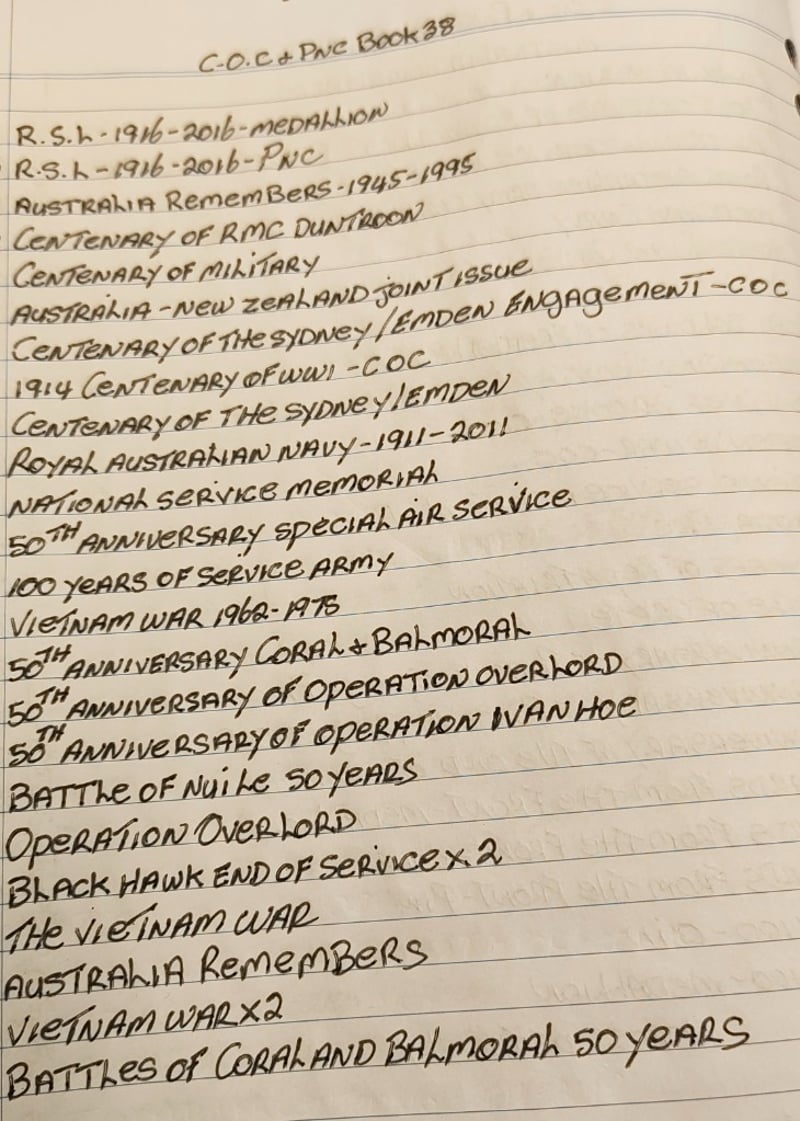 C.O.C & PNC BOOK 38
R.S.L-1916-2016-MEDALLION
R.S.L-1916-2016-PNC
AUSTRALIA REMEMBERS-1945-1995
CENTENARY OF RMC DUNTROON
CENTENARY OF MILITARY
AUSTRALIA-NEW ZEALAND JOINT ISSUE
CENTENARY OF THE SYDNEY/EMDEN ENGAGEMENT-COC
1914 CENTENARY OF WW1-COC
CENTENARY OF THE SYDNEY/EMDEN
ROYAL AUSTRALIAN NAVY-1911-2011
NATIONAL SERVICE MEMORIAL
50TH ANNIVERSARY SPECIAL AIR SERVICE
100 YEARS OF SERVICE ARMY
VIETNAM WAR 1962-1975
50TH ANNIVERSARY CORAL & BALMORAL
50TH ANNIVERSARY OF OPERATION OVERLORD
50TH ANNIVERSARY OF OPERATION IVANHOE
BATTLE OF NUI LE 50 YEARS
OPERATION OVERLORD
BLACK HAWK END OF SERVICE X 2
THE VIETNAM WAR
AUSTRALIA REMEMBERS
VIETNAM WAR X2
BATTLES OF CORAL AND BALMORAL 50 YEARS